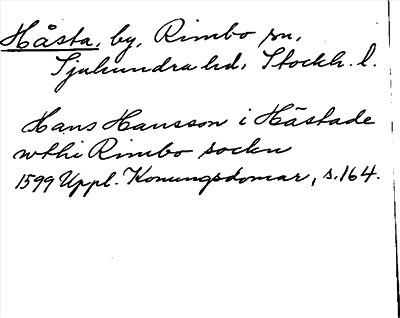 Håsta, by, Rimbo sn,
Sjuhundra hd, Stockh. l.
Hans Hansson i Håstade
wthi Rimbo sockn
1599 Uppl. Konungsdomar, s. 164.